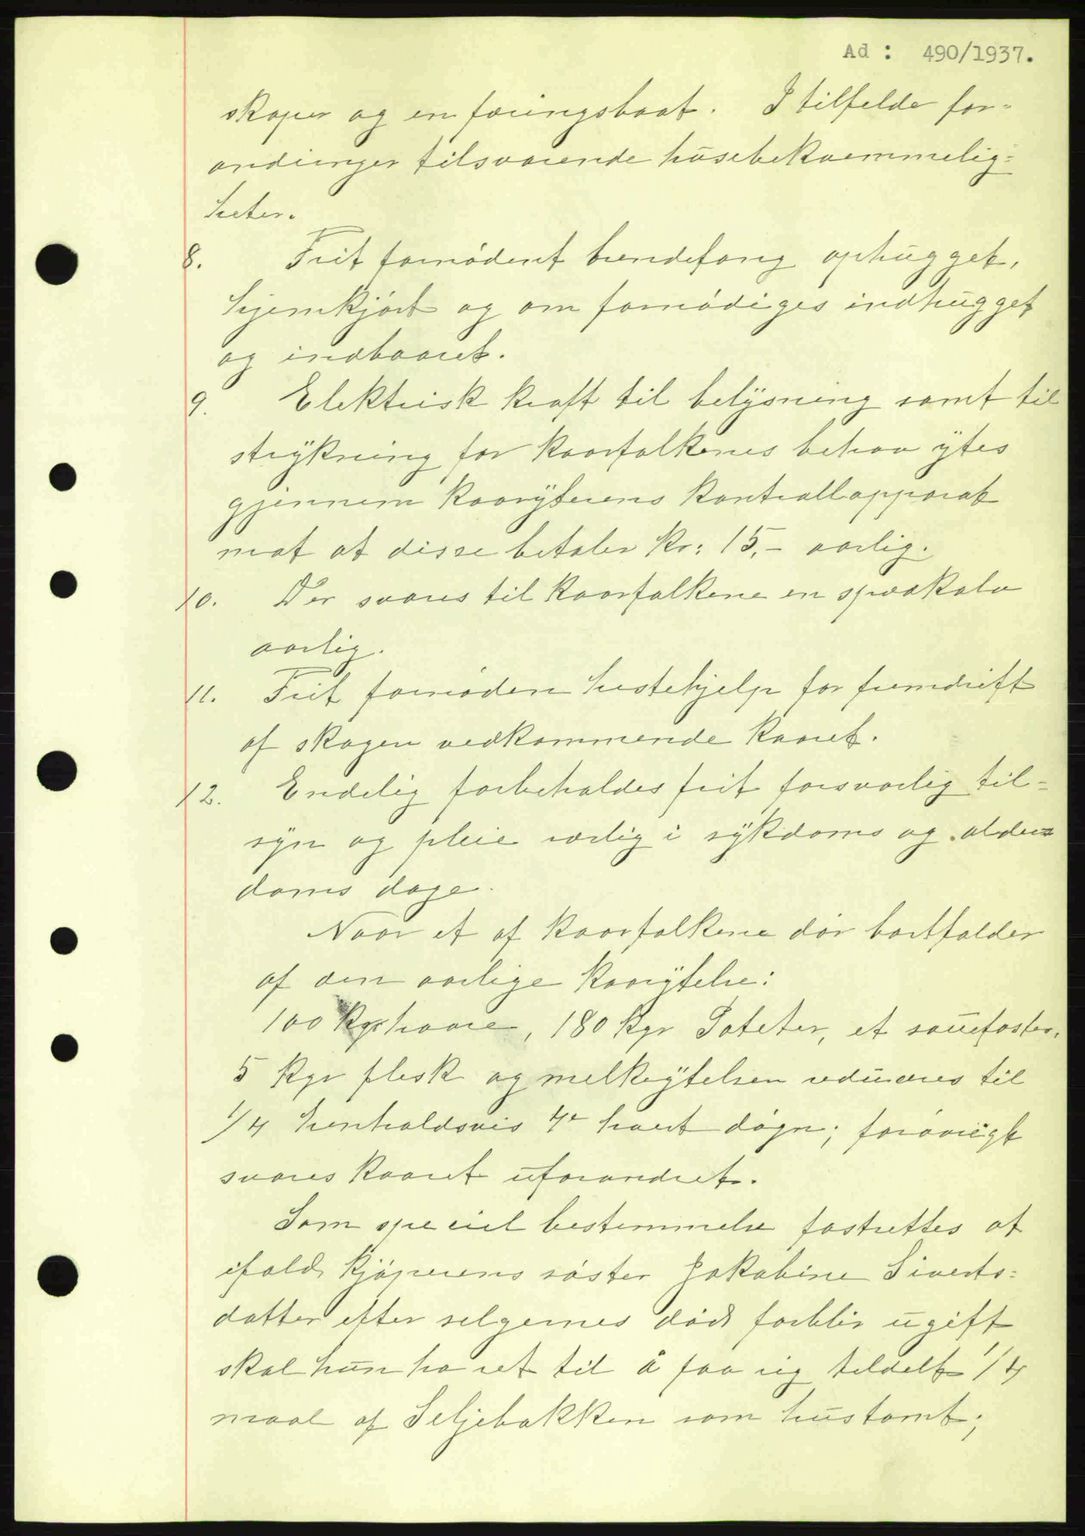 Ad : 490/1937.
skaper og en færingsbaat. I tilfelde for-
andringer tilsvarende husebekvemmelig-
heter.
8. Frit fornødent brendefang ophugget,
hjemkjørt og om fornødiges indhugget
og indbaaret.
9. Elektrisk kraft til belysning samt til
strykning for kaarfolkenes behov ytes
gjennem kaaryterens kontrollapparat
mot at disse betaler kr: 15,- aarlig.
10. Der svares til kaarfolkene en spækalv
aarlig.
11. Frit fornøden hestehjelp for fremdrift
af skogen vedkommende kaaret.
12. Endelig forbeholdes frit forsvarlig til-
syn og pleie særlig i sykdoms og alder-
doms dage.
Naar et af kaarfolkene dør bortfalder
af den aarlige kaarytelse:
100 kgr havre, 180 kgr Poteter, et sauefoster,
5 kgr flesk og melkeytelsen reduceres til
1/4 henholdsvis hvert døgn; forøvrigt
svares kaaret uforandret.
Som speciel bestemmelse fastsettes at
ifald kjøperens søster Jakobine Siverts-
datter efter selgernes død forblir ugift
skal hun ha ret til å faa sig tildelt 1/4
maal af Seljebakken som hustomt;